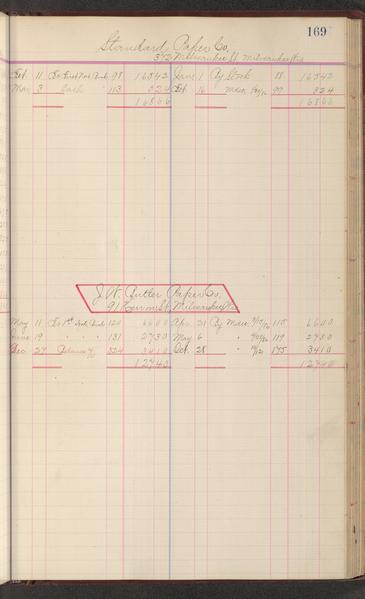 169
Standard Paper Co.
372 Milwaukee St. Milwaukee Wis
Feb 11 To First Nat. Bank 98 16342 June 1 By Stock 88 16342
Mar 3 Cash 113 324 Feb 16 " Mdse 99 324
16666 16666
J. W. Butler Paper Co,
St. Milwaukee Wis
May 11 To 1st Nat. Bank 120 6600 Apr. 21 By Mdse. 115 6600
June 19 " " " 131 2730 May 6 " 119 2730
Dec 27 324 3410 Oct. 28 " 175 3410
12740 12740